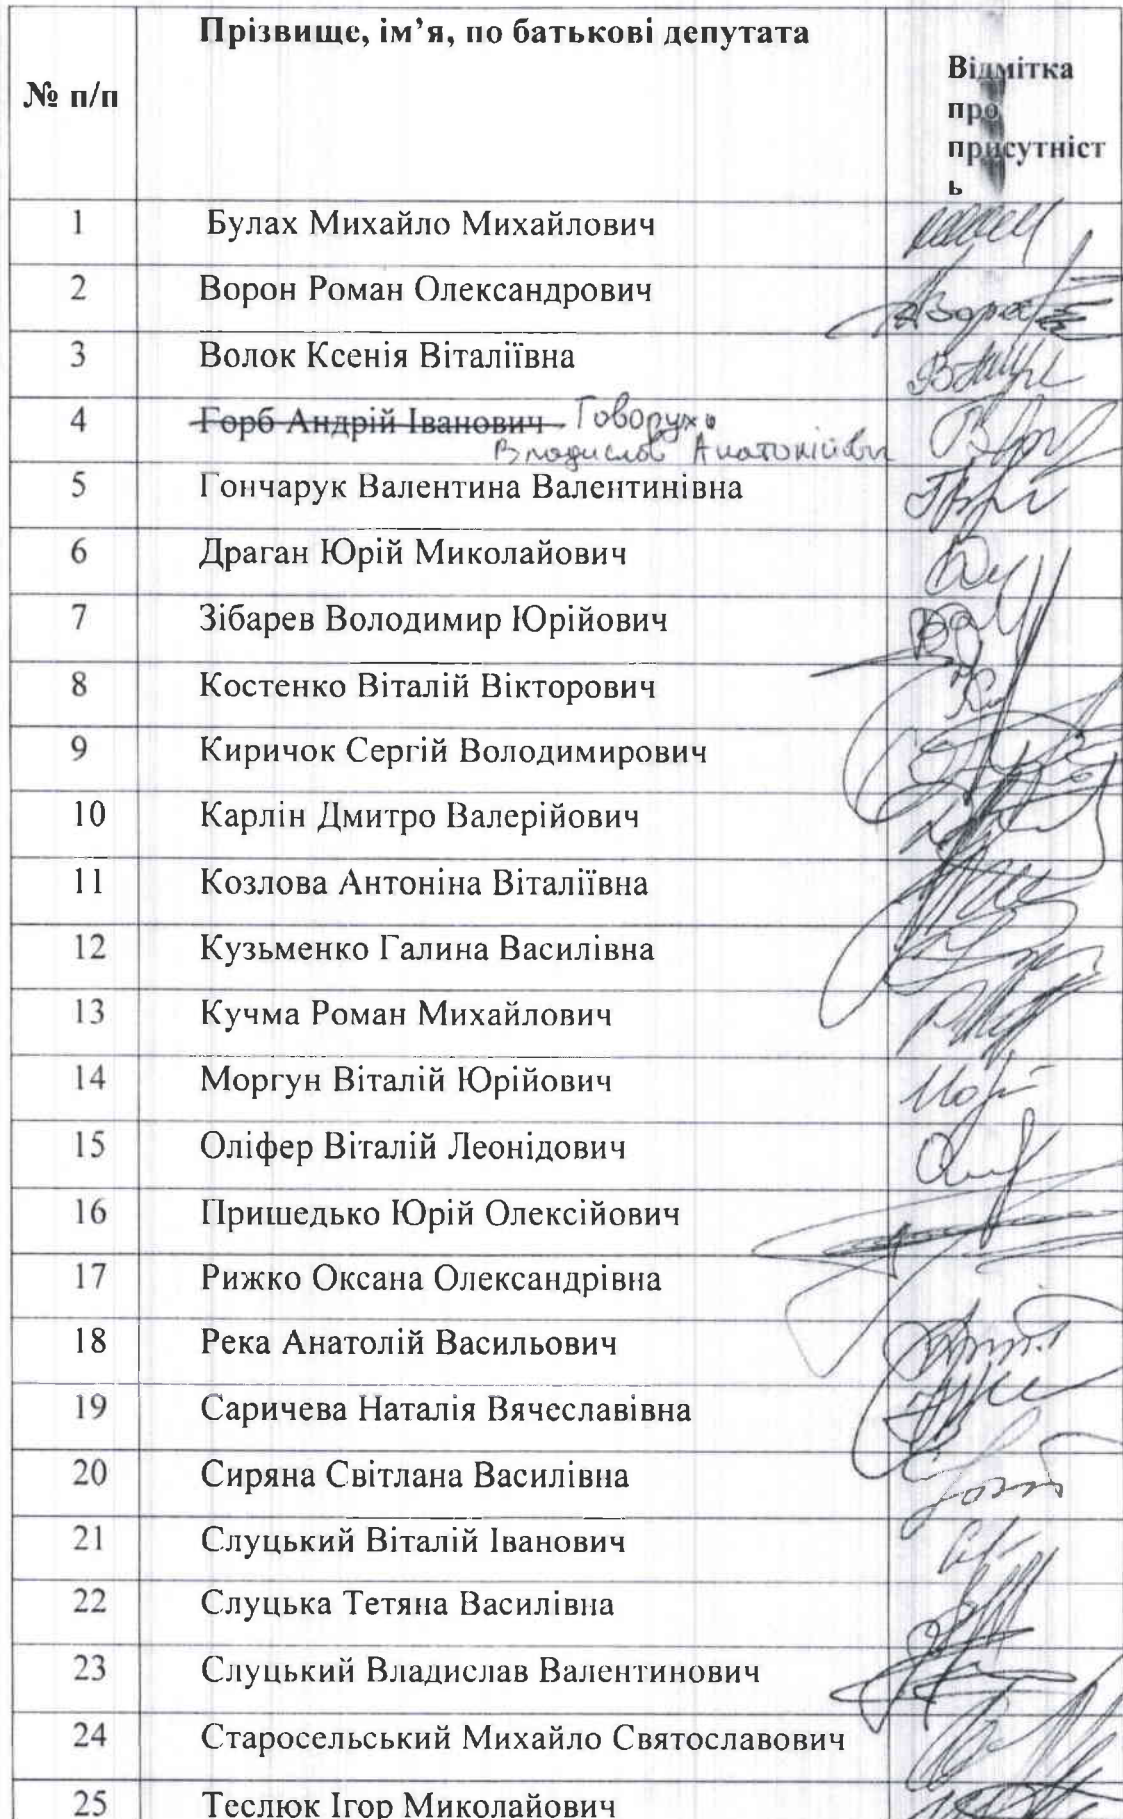 № п/п Прізвище, ім’я, по батькові депутата Відмітка
про
присутніст
ь
1 Булах Михайло Михайлович
2 Ворон Роман Олександрович
3 Волок Ксенія Віталіївна
4 Горб Андрій Іванович Говоруха
Владислав Анатолійович
5 Гончарук Валентина Валентинівна
6 Драган Юрій Миколайович
7 Зібарев Володимир Юрійович
8 Костенко Віталій Вікторович
9 Киричок Сергій Володимирович
10 Карлін Дмитро Валерійович
11 Козлова Антоніна Віталіївна
12 Кузьменко Галина Василівна
13 Кучма Роман Михайлович
14 Моргун Віталій Юрійович
15 Оліфер Віталій Леонідович
16 Пришедько Юрій Олексійович
17 Рижко Оксана Олександрівна
18 Река Анатолій Васильович
19 Саричева Наталія Вячеславівна
20 Сиряна Світлана Василівна
21 Слуцький Віталій Іванович
22 Слуцька Тетяна Василівна
23 Слуцький Владислав Валентинович
24 Старосельський Михайло Святославович
25 Теслюк Ігор Миколайович